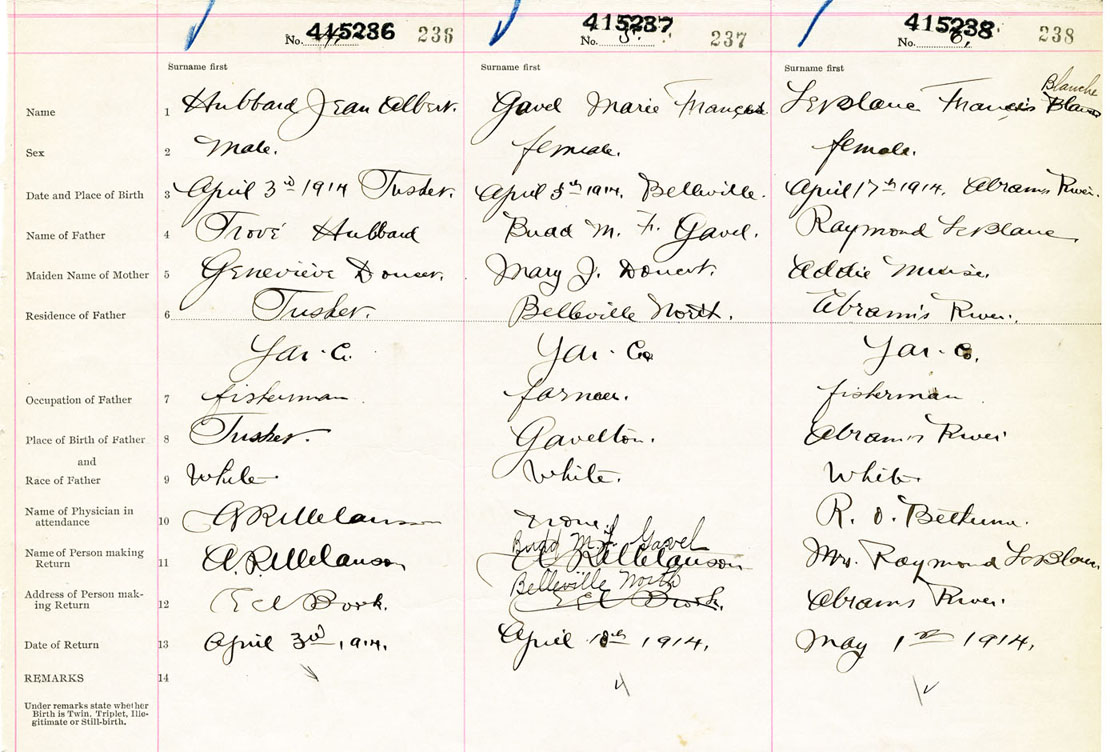 No. 415236 236
No. 415237 237
No. 415238 238
Surname first
Surname first
Surname first
Name 1 Hubbard Jean Albert. Gavel Marie Frances LeBlanc Francis Blanche
Sex 2 Male. female. female.
Date and Place of Birth 3 April 3rd 1914 Tusket. April 5th 1914. Belleville. April 17th 1914. Abrams River.
Name of Father 4 Trové Hubbard Budd M. F. Gavel. Raymond LeBlanc
Maiden Name of Mother 5 Geneviève Doucet. Mary J. Doucet. Addie Muise.
Residence of Father 6 Tusket. Belleville North. Abram's River.
Yar. Co. Yar. Co. Yar. Co.
Occupation of Father 7 fisherman farmer. fisherman
Place of Birth of Father 8 Tusket. Gavelton. Abram's River
and
Race of Father 9 White White. White.
Name of Physician in
attendance 10 A R Melanson none. R. O. Bethune.
Name of Person making
Return 11 A. R. Melanson Budd M. F. Gavel A R Melanson Mrs. Raymond LeBlanc
Address of Person mak-
ing Return 12 Eel Brook. Belleville North Eel Brook. Abrams River.
Date of Return 13 April 3rd 1914. April 18th 1914. May 1st 1914.
REMARKS 14
Under remarks state whether
Birth is Twin, Triplet, Ille-
gitimate or Still-birth.